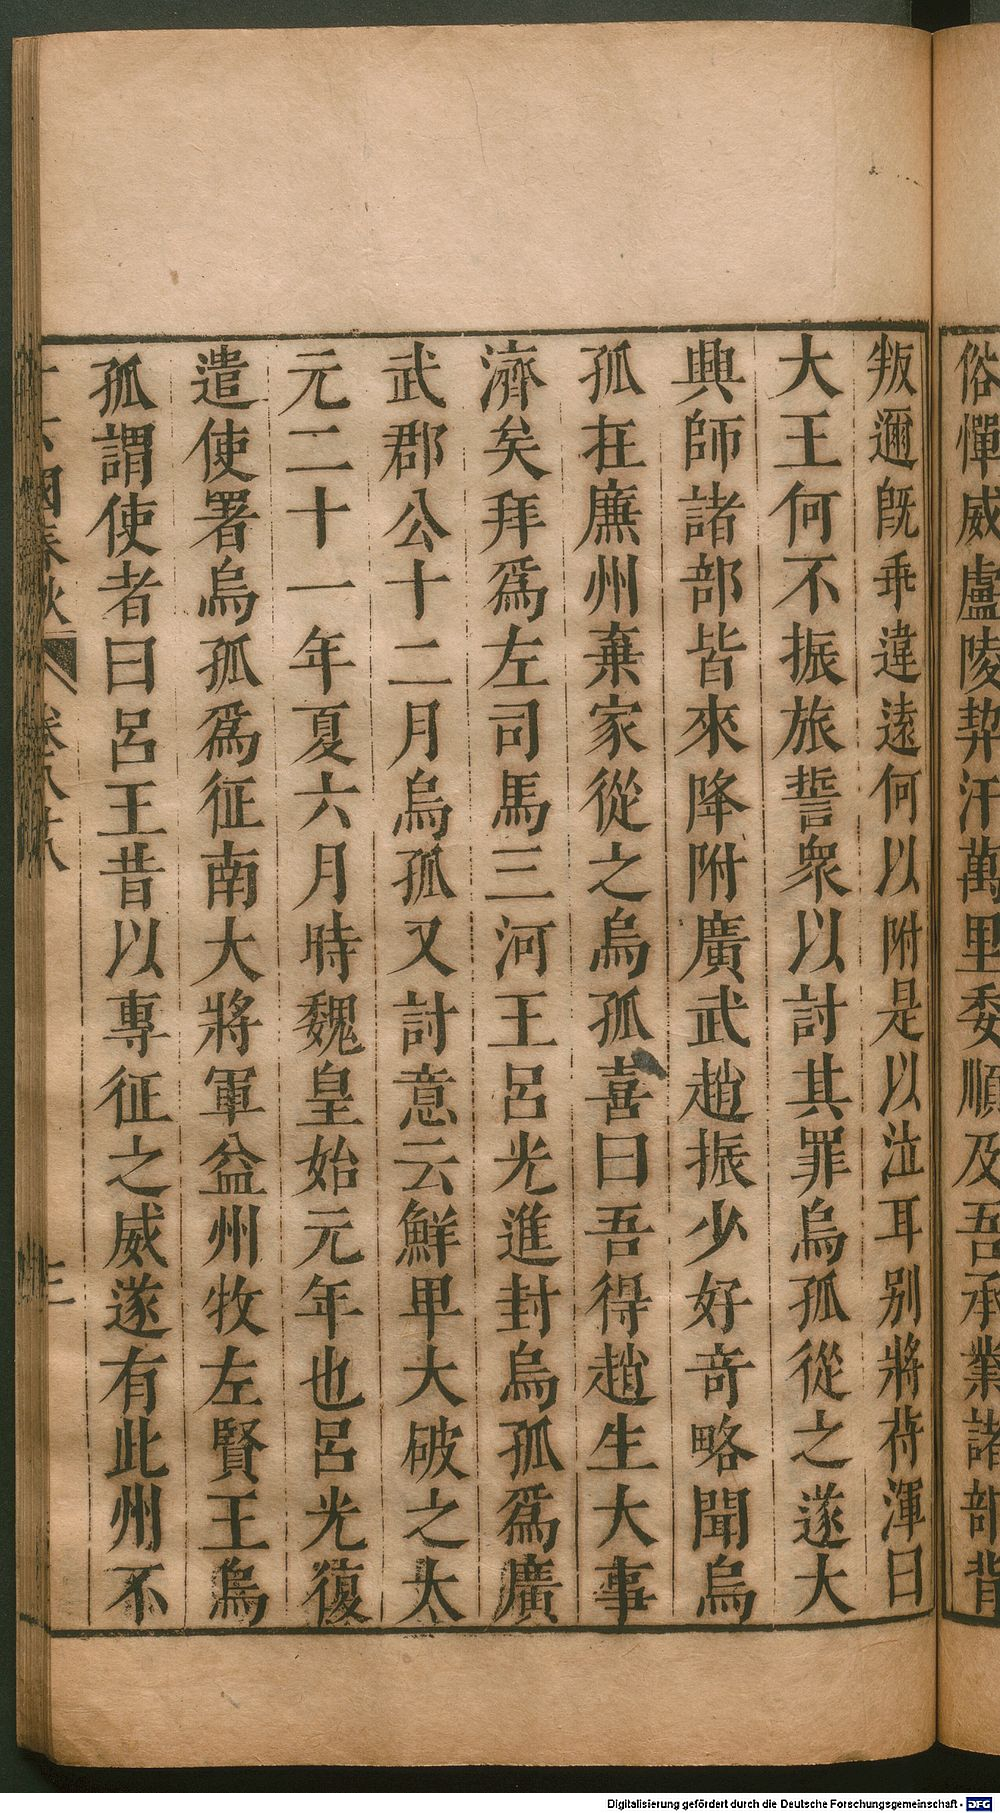 俗憚威盧陵契汗萬里委順及吾承業諸部背
叛邇旣乖違遠何以附是以泣耳别將苻渾曰
大王何不振旅誓衆以討其罪烏孤從之遂大
興師諸部皆來降附廣武趙振少好奇略聞烏
孤在廉州棄家從之烏孤喜曰吾得趙生大事
濟矣拜爲左司馬三河王呂光進封烏孤爲廣
武郡公十二月烏孤又討意云鮮卑大破之太
元二十一年夏六月時魏皇始元年也呂光復
遣使署烏孤爲征南大將軍益州牧左賢王烏
孤謂使者曰呂王昔以專征之威遂有此州不
十六國春秋 卷八十八 三
Digitalisierung gefördert durch die Deutsche Forschungsgemeinschaft - DFG